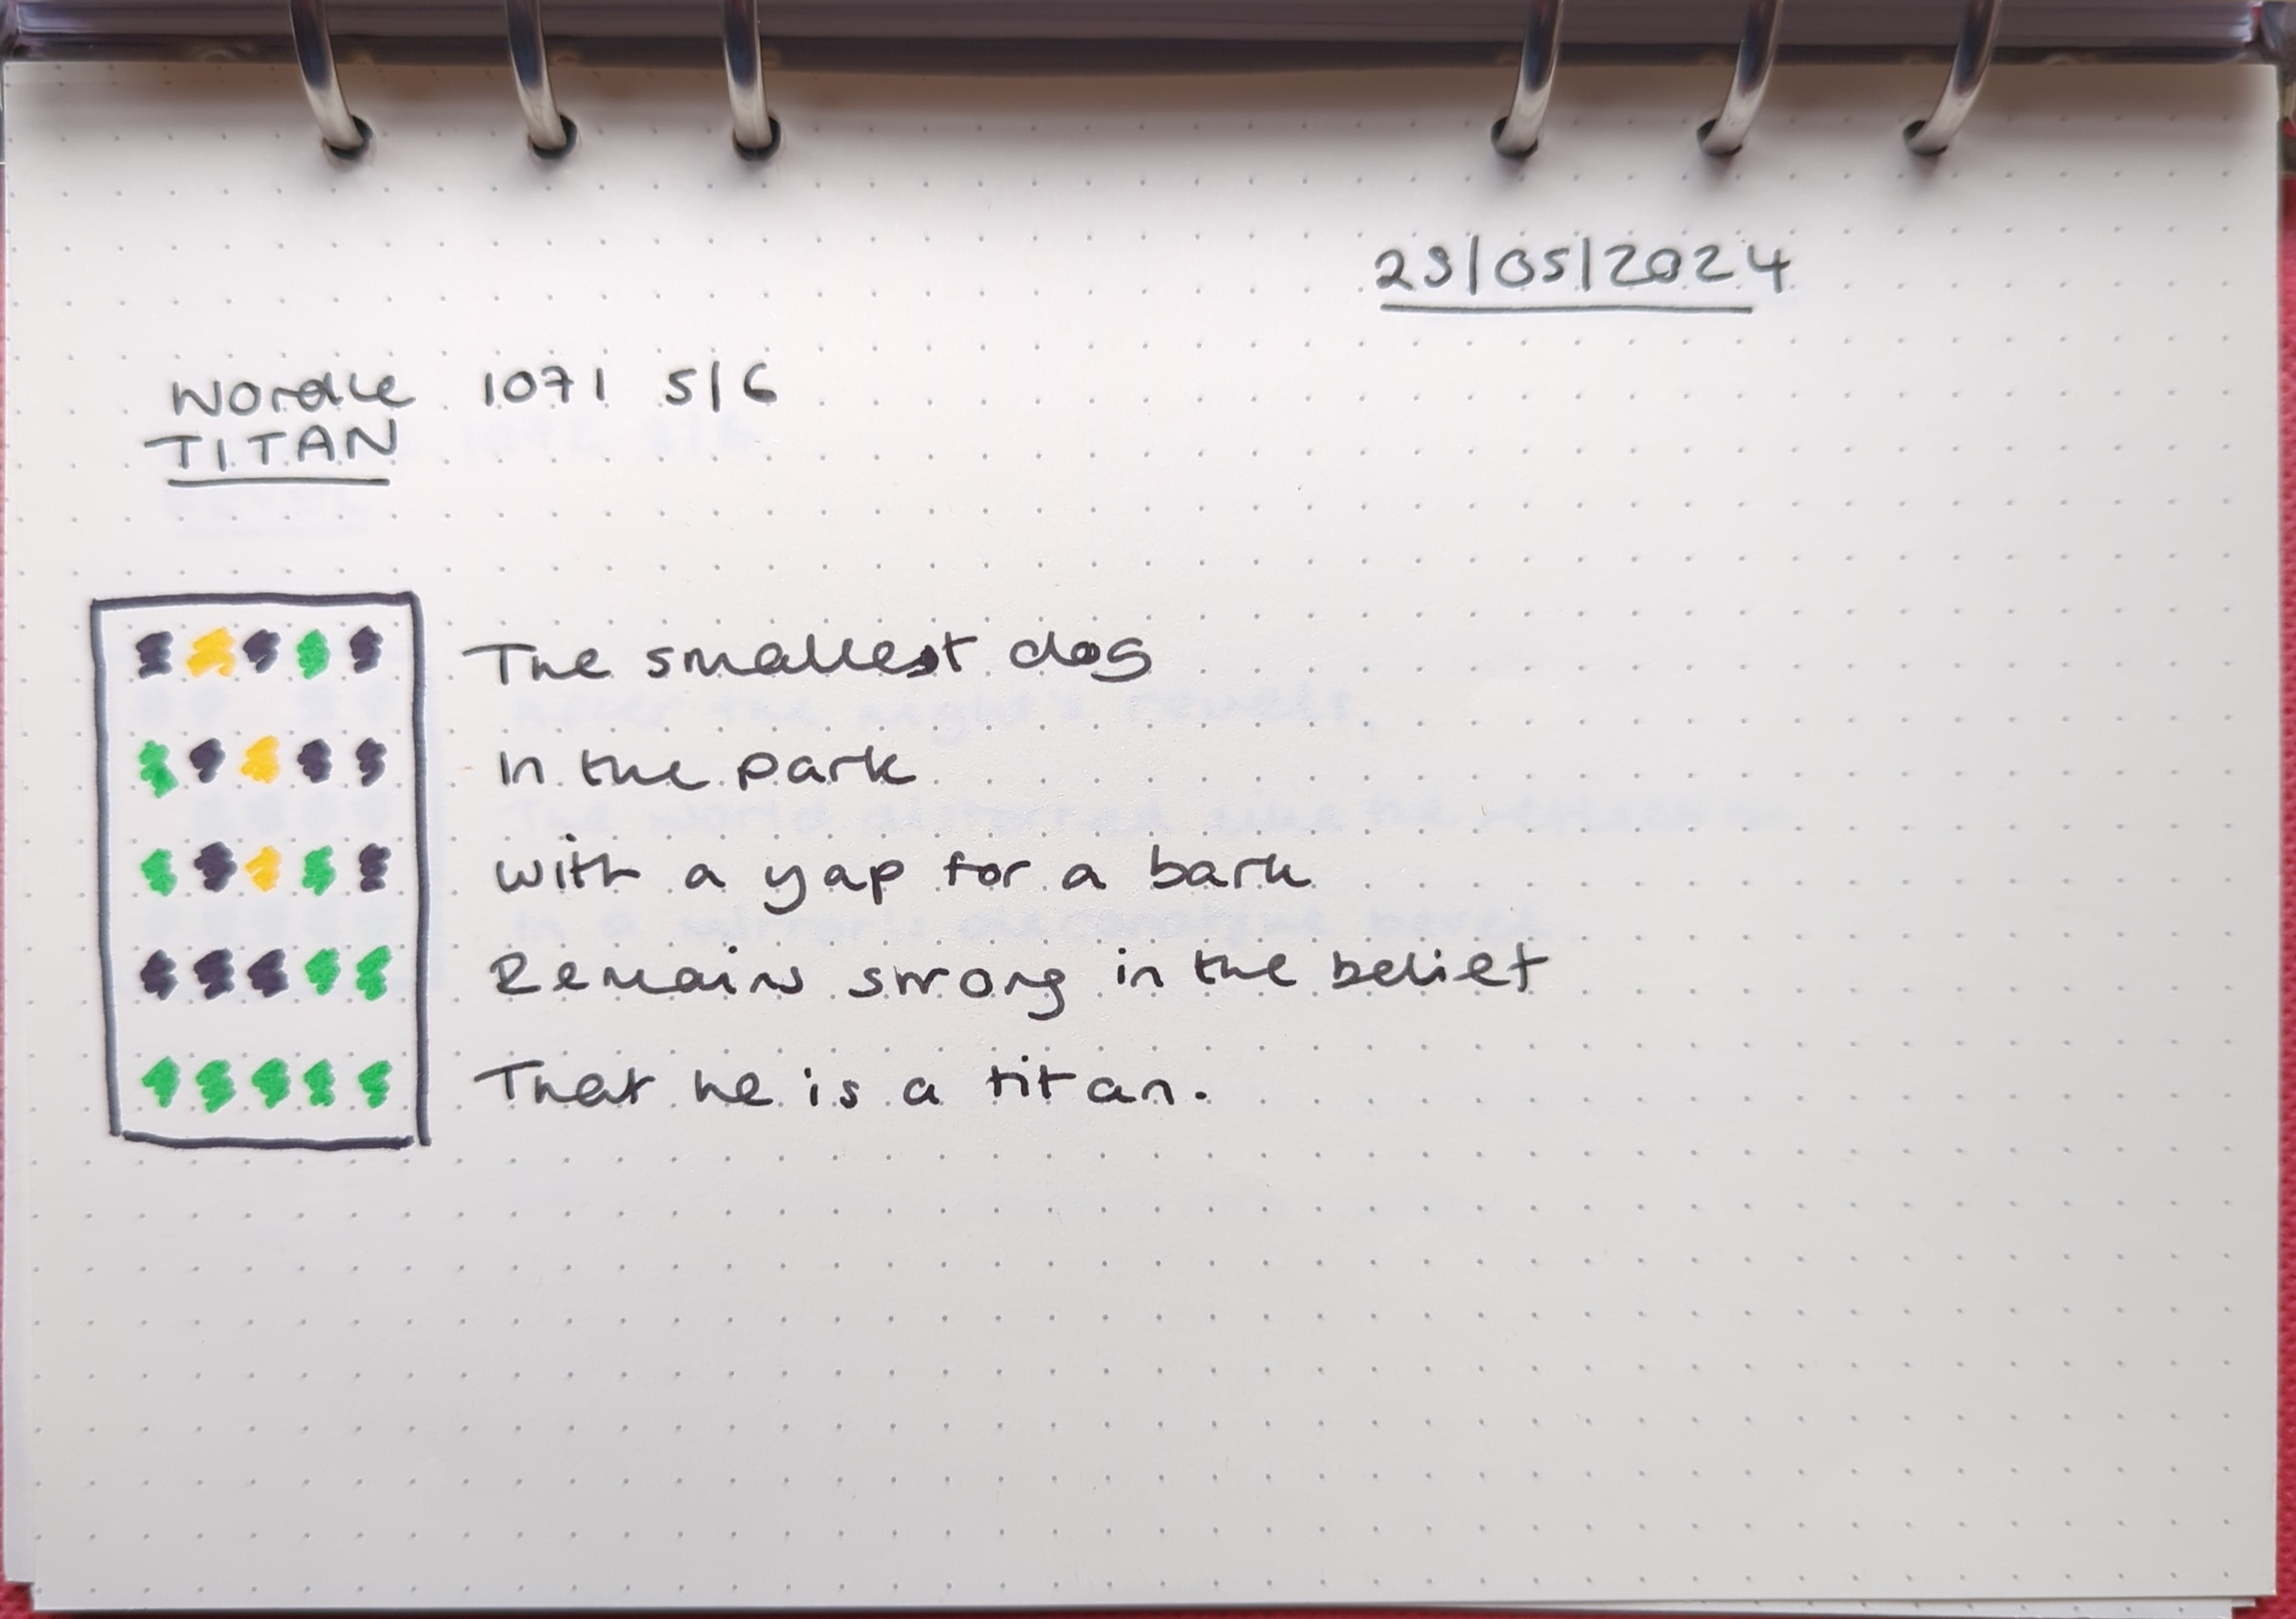 23/05/2024
Wordle 1071 5/6
TITAN
The smallest dog
In the park
With a yap for a bark
Remains strong in the belief
That he is a titan.